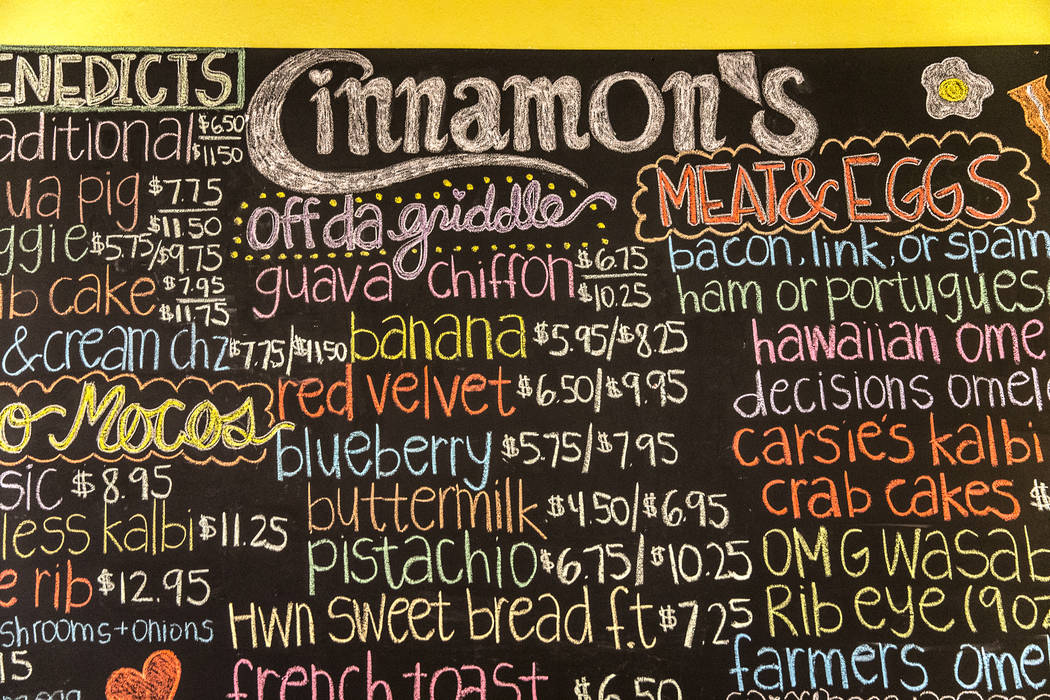 ENEDICTS
aditional $6.50 $11.50
ua pig $7.75 $11.50
ggie $5.75/$9.75
ab cake $7.95 $11.75
& cream chz $7.75/$11.50
o Mocos
sic $8.95
less kalbi $11.25
e rib $12.95
shrooms + onions
Cinnamon's
off da griddle
guava chiffon $6.75 $10.25
banana $5.95/$8.25
red velvet $6.50/$9.95
blueberry $5.75/$7.95
buttermilk $4.50/$6.95
pistachio $6.75/$10.25
HWN sweet bread f.t $7.25
french toast $6.50
MEAT & EGGS
bacon, link, or spam
ham or portugues
hawaiian ome
decisions omel
carsie's kalbi
crab cakes $
OMG Wasab
Rib eye (9oz
farmers ome